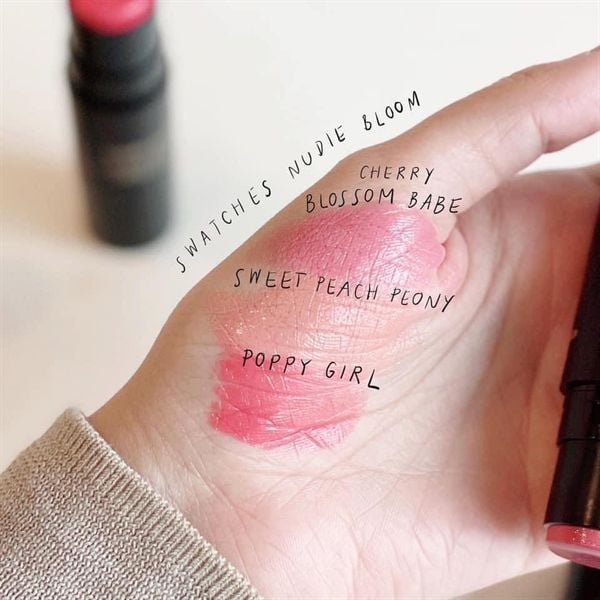 SWATCHES NUDIE BLOOM
CHERRY
BLOSSOM BABE
SWEET PEACH PEONY
POPPY GIRL